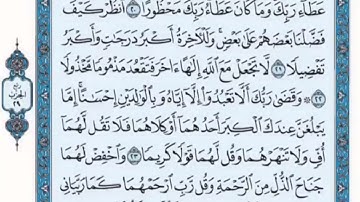 عَطَآءِ رَبِّكَ وَمَا كَانَ عَطَآءُ رَبِّكَ مَحْظُورًا ۝٢٠ ٱنظُرْ كَيْفَ
فَضَّلْنَا بَعْضَهُمْ عَلَىٰ بَعْضٍ وَلَلْـَٔاخِرَةُ أَكْبَرُ دَرَجَٰتٍ وَأَكْبَرُ
تَفْضِيلًا ۝٢١ لَّا تَجْعَلْ مَعَ ٱللَّهِ إِلَٰهًا ءَاخَرَ فَتَقْعُدَ مَذْمُومًا مَّخْذُولًا
۝٢٢ وَقَضَىٰ رَبُّكَ أَلَّا تَعْبُدُوٓا۟ إِلَّآ إِيَّاهُ وَبِٱلْوَٰلِدَيْنِ إِحْسَٰنًا إِمَّا
يَبْلُغَنَّ عِندَكَ ٱلْكِبَرَ أَحَدُهُمَآ أَوْ كِلَاهُمَا فَلَا تَقُل لَّهُمَآ
أُفٍّ وَلَا تَنْهَرْهُمَا وَقُل لَّهُمَا قَوْلًا كَرِيمًا ۝٢٣ وَٱخْفِضْ لَهُمَا
جَنَاحَ ٱلذُّلِّ مِنَ ٱلرَّحْمَةِ وَقُل رَّبِّ ٱرْحَمْهُمَا كَمَا رَبَّيَانِى